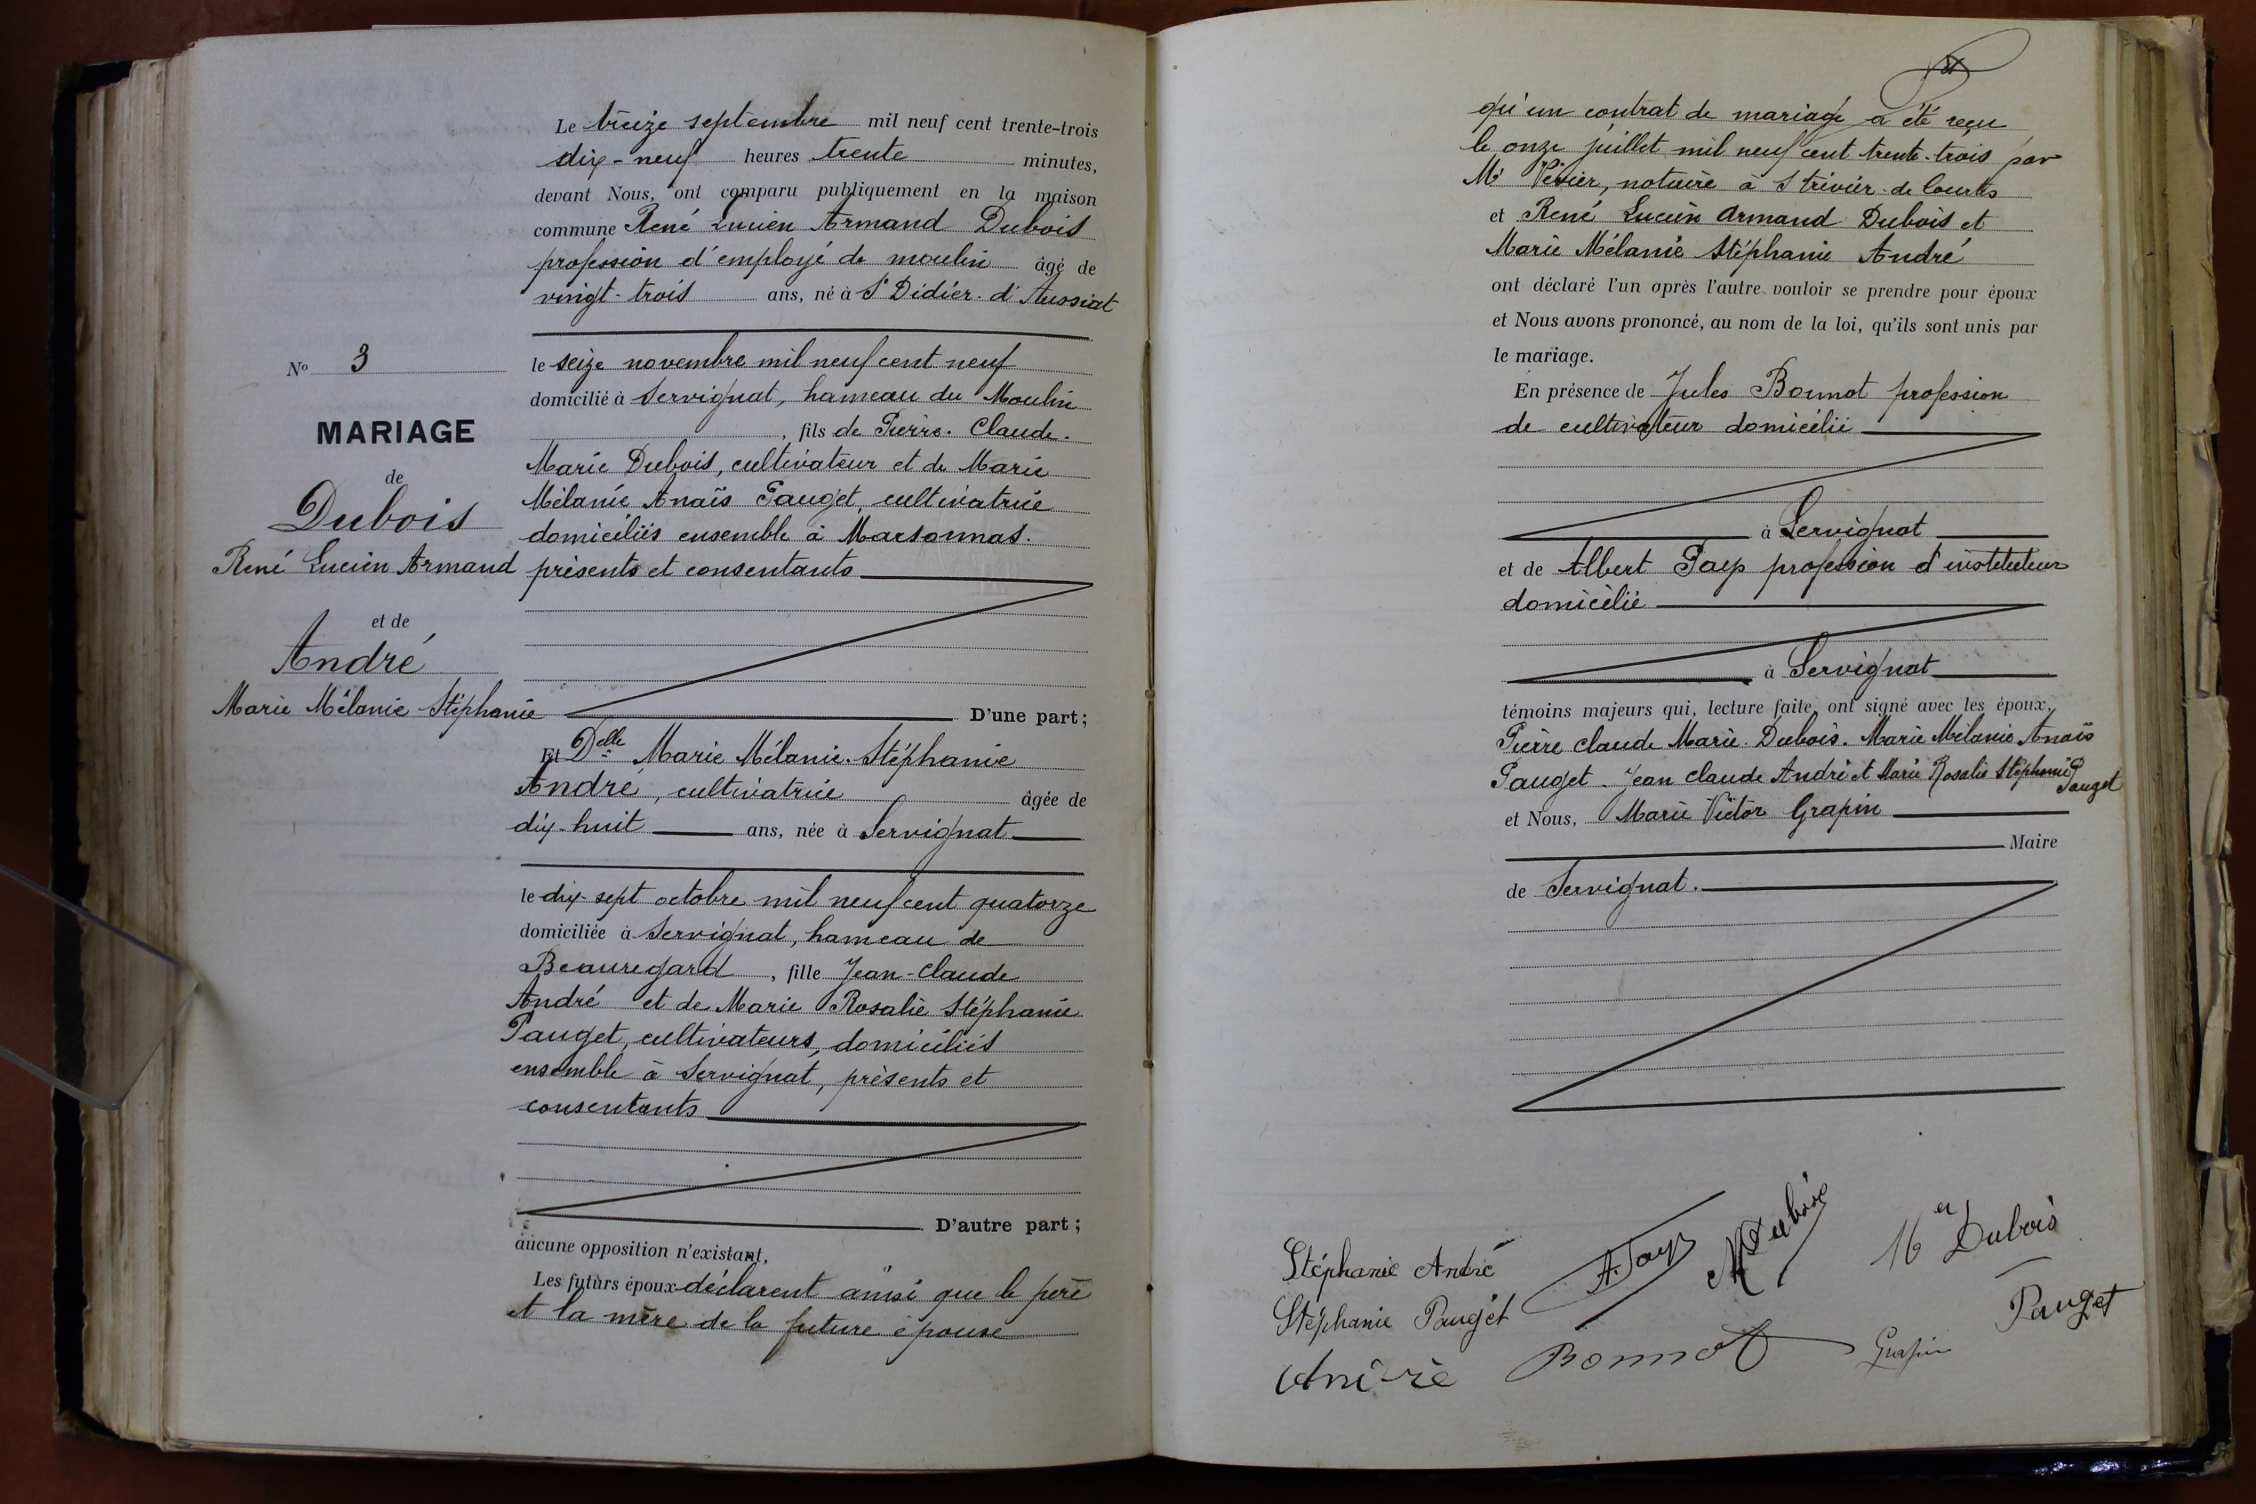 Le treize septembre mil neuf cent trente-trois
dix-neuf heures trente minutes,
devant Nous, ont comparu publiquement en la maison
commune René Lucien Armand Dubois
profession d'employé de moulin âgé de
vingt-trois ans, né à St Didier-d'Aussiat
le seize novembre mil neuf cent neuf
domicilié à Servignat, hameau du Moulin
, fils de Pierre-Claude-
Marie Dubois, cultivateur et de Marie
Mélanie Anaïs Pauget, cultivatrice
domiciliés ensemble à Marsonnas.
présents et consentants
D'une part;
No 3
MARIAGE
de
Dubois
René Lucien Armand
et de
André
Marie Mélanie Stéphanie
Et Delle Marie Mélanie-Stéphanie
André, cultivatrice âgée de
dix-huit ans, née à Servignat
le dix-sept octobre mil neuf cent quatorze
domiciliée à Servignat, hameau de
Beauregard, fille Jean-Claude
André et de Marie Rosalie Stéphanie
Pauget, cultivateurs, domiciliés
ensemble à Servignat, présents et
consentants
D'autre part;
aucune opposition n'existant,
Les futurs époux déclarent ainsi que le père
et la mère de la future épouse
qu'un contrat de mariage a été reçu
le onze juillet mil neuf cent trente-trois par
Me notaire à St trivier-de Courtes
et René Lucien Armand Dubois et
Marie Mélanie Stéphanie André
ont déclaré l'un après l'autre vouloir se prendre pour époux
et Nous avons prononcé, au nom de la loi, qu'ils sont unis par
le mariage.
En présence de Jules Bonnot profession
de cultivateur domicilié
à Servignat
et de Albert profession d'instituteur
domicilié
à Servignat
témoins majeurs qui, lecture faite, ont signé avec les époux,
Pierre Claude Marie Dubois. Marie Mélanie Anaïs
Pauget. Jean Claude André et Marie Rosalie Stéphanie Pauget
et Nous, Marie Victor Grapin
Maire
de Servignat.
Stéphanie André
Dubois
Dubois
Stéphanie Pauget
Pauget
André
Bonnot
Grapin